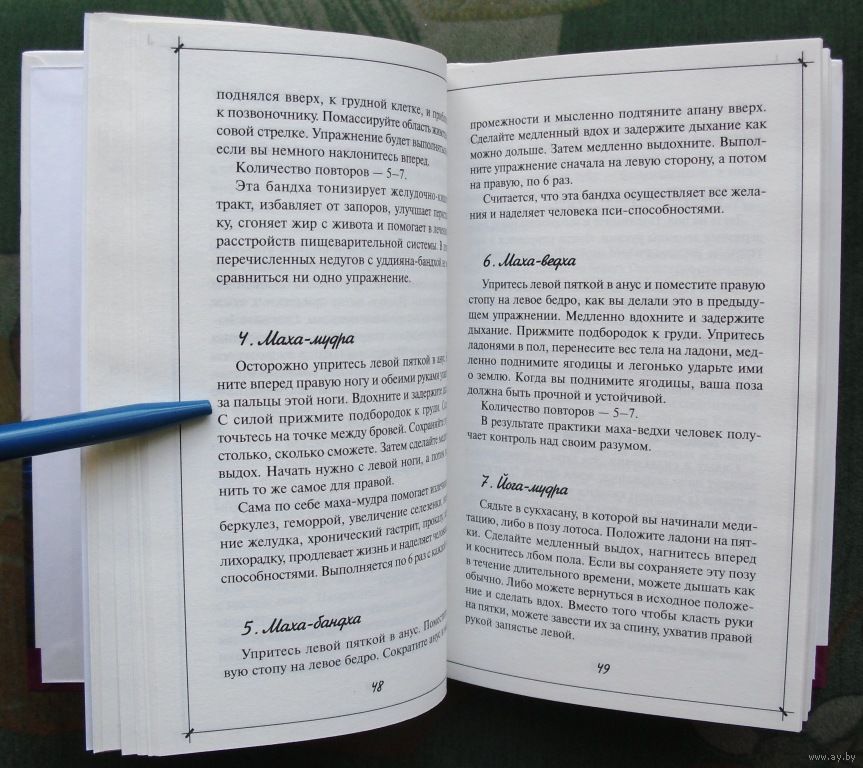 поднялся вверх, к грудной клетке, и
к позвоночнику. Помассируйте область
совой стрелке. Упражнение будет
если вы немного наклонитесь вперед.
Количество повторов — 5–7.
Эта бандха тонизирует
тракт, избавляет от запоров, улучшает
ку, сгоняет жир с живота и помогает в
расстройств пищеварительной системы. В
перечисленных недугов с уддияна-бандхой не
сравниться ни одно упражнение.
4. Маха-мудра
Осторожно упритесь левой пяткой в анус.
ните вперед правую ногу и обеими руками
за пальцы этой ноги. Вдохните и задержите
С силой прижмите подбородок к груди.
точьтесь на точке между бровей.
столько, сколько сможете. Затем сделайте
выдох. Начать нужно с левой ноги, а потом
нить то же самое для правой.
Сама по себе маха-мудра помогает
беркулез, геморрой, увеличение селезенки,
ние желудка, хронический гастрит,
лихорадку, продлевает жизнь и наделяет
способностями. Выполняется по 6 раз с
5. Маха-бандха
Упритесь левой пяткой в анус.
вую стопу на левое бедро. Сократите анус и
48
промежности и мысленно подтяните апану вверх.
Сделайте медленный вдох и задержите дыхание как
можно дольше. Затем медленно выдохните. Выпол-
ните упражнение сначала на левую сторону, а потом
на правую, по 6 раз.
Считается, что эта бандха осуществляет все жела-
ния и наделяет человека пси-способностями.
6. Маха-ведха
Упритесь левой пяткой в анус и поместите правую
стопу на левое бедро, как вы делали это в предыду-
щем упражнении. Медленно вдохните и задержите
дыхание. Прижмите подбородок к груди. Упритесь
ладонями в пол, перенесите вес тела на ладони, мед-
ленно поднимите ягодицы и легонько ударьте ими
о землю. Когда вы поднимите ягодицы, ваша поза
должна быть прочной и устойчивой.
Количество повторов — 5–7.
В результате практики маха-ведхи человек полу-
чает контроль над своим разумом.
7. Йога-мудра
Сядьте в сукхасану, в которой вы начинали меди-
тацию, либо в позу лотоса. Положите ладони на пят-
ки. Сделайте медленный выдох, нагнитесь вперед
и коснитесь лбом пола. Если вы сохраняете эту позу
в течение длительного времени, можете дышать как
обычно. Либо можете вернуться в исходное положе-
ние и сделать вдох. Вместо того чтобы класть руки
на пятки, можете завести их за спину, ухватив правой
рукой запястье левой.
49
www.ay.by